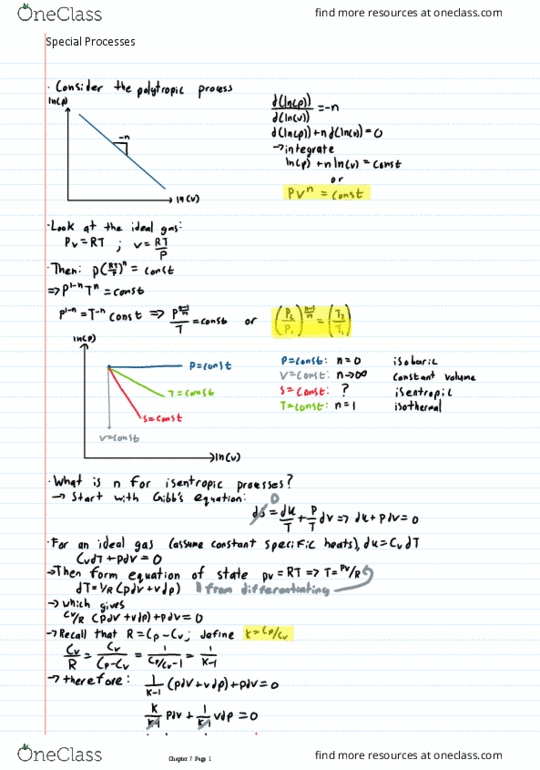 OneClass
find more resources at oneclass.com
Special Processes
· Consider the polytropic process
ln(p)
-n
ln(v)
d(ln(p))/d(ln(v)) = -n
d(ln(p)) + n d(ln(v)) = 0
→ integrate
ln(p) + n ln(v) = const
or
Pvⁿ = const
· Look at the ideal gas:
Pv = RT ; v = RT/P
· Then: p(RT/P)ⁿ = const
⇒ P¹⁻ⁿTⁿ = const
P¹⁻ⁿ = T⁻ⁿ const ⇒ P^((n-1)/n)/T = const or (P₂/P₁)^((n-1)/n) = (T₂/T₁)
ln(p)
P = const
T = const
S = const
V = const
ln(v)
P = const: n = 0 isobaric
V = const: n → ∞ constant volume
S = const: ? isentropic
T = const: n = 1 isothermal
· What is n for isentropic processes?
→ Start with Gibb's equation:
0
ds = du/T + P/T dv ⇒ du + Pdv = 0
· For an ideal gas (assume constant specific heats), du = CvdT
CvdT + Pdv = 0
→ Then form equation of state pv = RT ⇒ T = Pv/R
dT = 1/R (pdv + vdp) from differentiating
→ which gives
Cv/R (pdv + vdp) + pdv = 0
→ Recall that R = Cp - Cv; define k = Cp/Cv
Cv/R = Cv/(Cp-Cv) = 1/(Cp/Cv-1) = 1/(k-1)
→ therefore: 1/(k-1) (pdv + vdp) + pdv = 0
k/(k-1) pdv + 1/(k-1) vdp = 0
Chapter 7 Page 1
OneClass
find more resources at oneclass.com